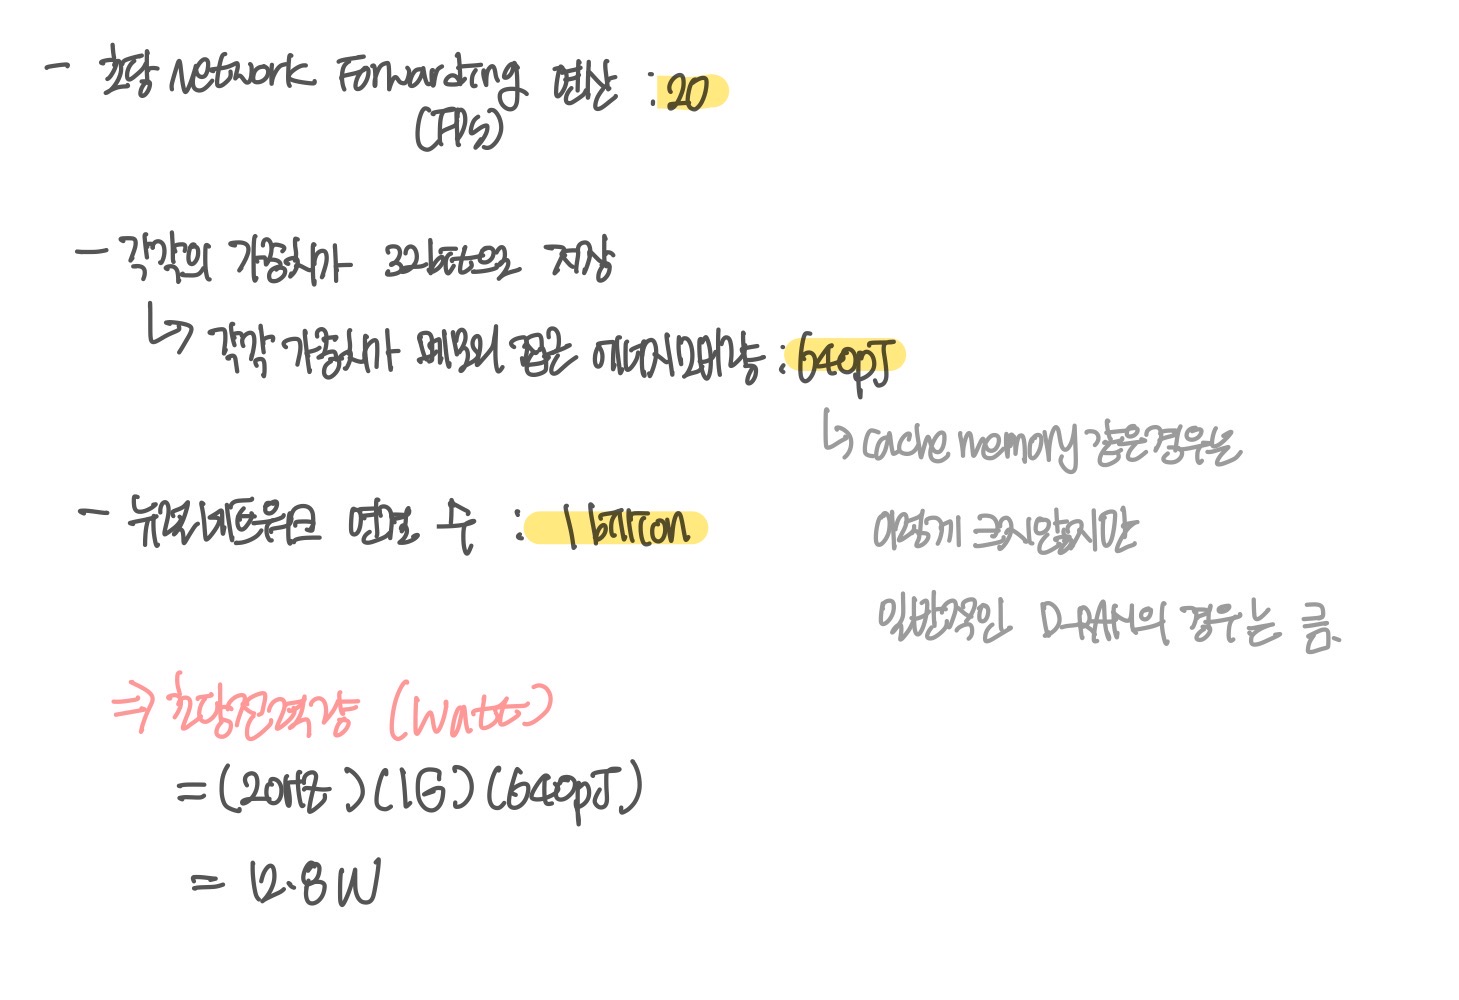 - 초당 Network Forwarding 연산 : 20
(FPS)
- 각각의 가중치가 32bit으로 저장
↳ 각각 가중치가 메모리 접근 에너지소비량 : 640pJ
↳ cache memory 같은경우는
이렇게 크지않지만
일반적인 D-RAM의 경우는 큼.
- 뉴럴네트워크 연결 수 : 1 billion
⇒ 초당전력량 (Watt)
= (20Hz) (1G) (640pJ)
= 12.8W